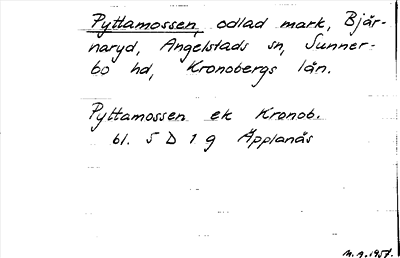 Pyttamossen, odlad mark, Bjär-
naryd, Angelstads sn, Sunner-
bo hd, Kronobergs län.
Pyttamossen ek Kronob.
bl. 5 D 1 g Äpplanäs
M.A. 1957.